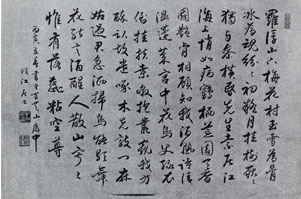 羅浮山下梅花村玉雪為骨
冰為魂紛紛初疑月挂樹耿耿
獨與參橫昏先生索居江
海上悄如病鶴栖荒園天香
國艷肯相顧知我酒熟詩清
溫蓬萊宮中花鳥使綠衣
倒挂扶桑暾抱叢窺我方
醉臥故遣啄木先敲門麻
姑過君急洒掃鳥能歌舞
花能言酒醒人散山寂寂
惟有落蕊黏空尊
丙寅 書於 山居中
居士